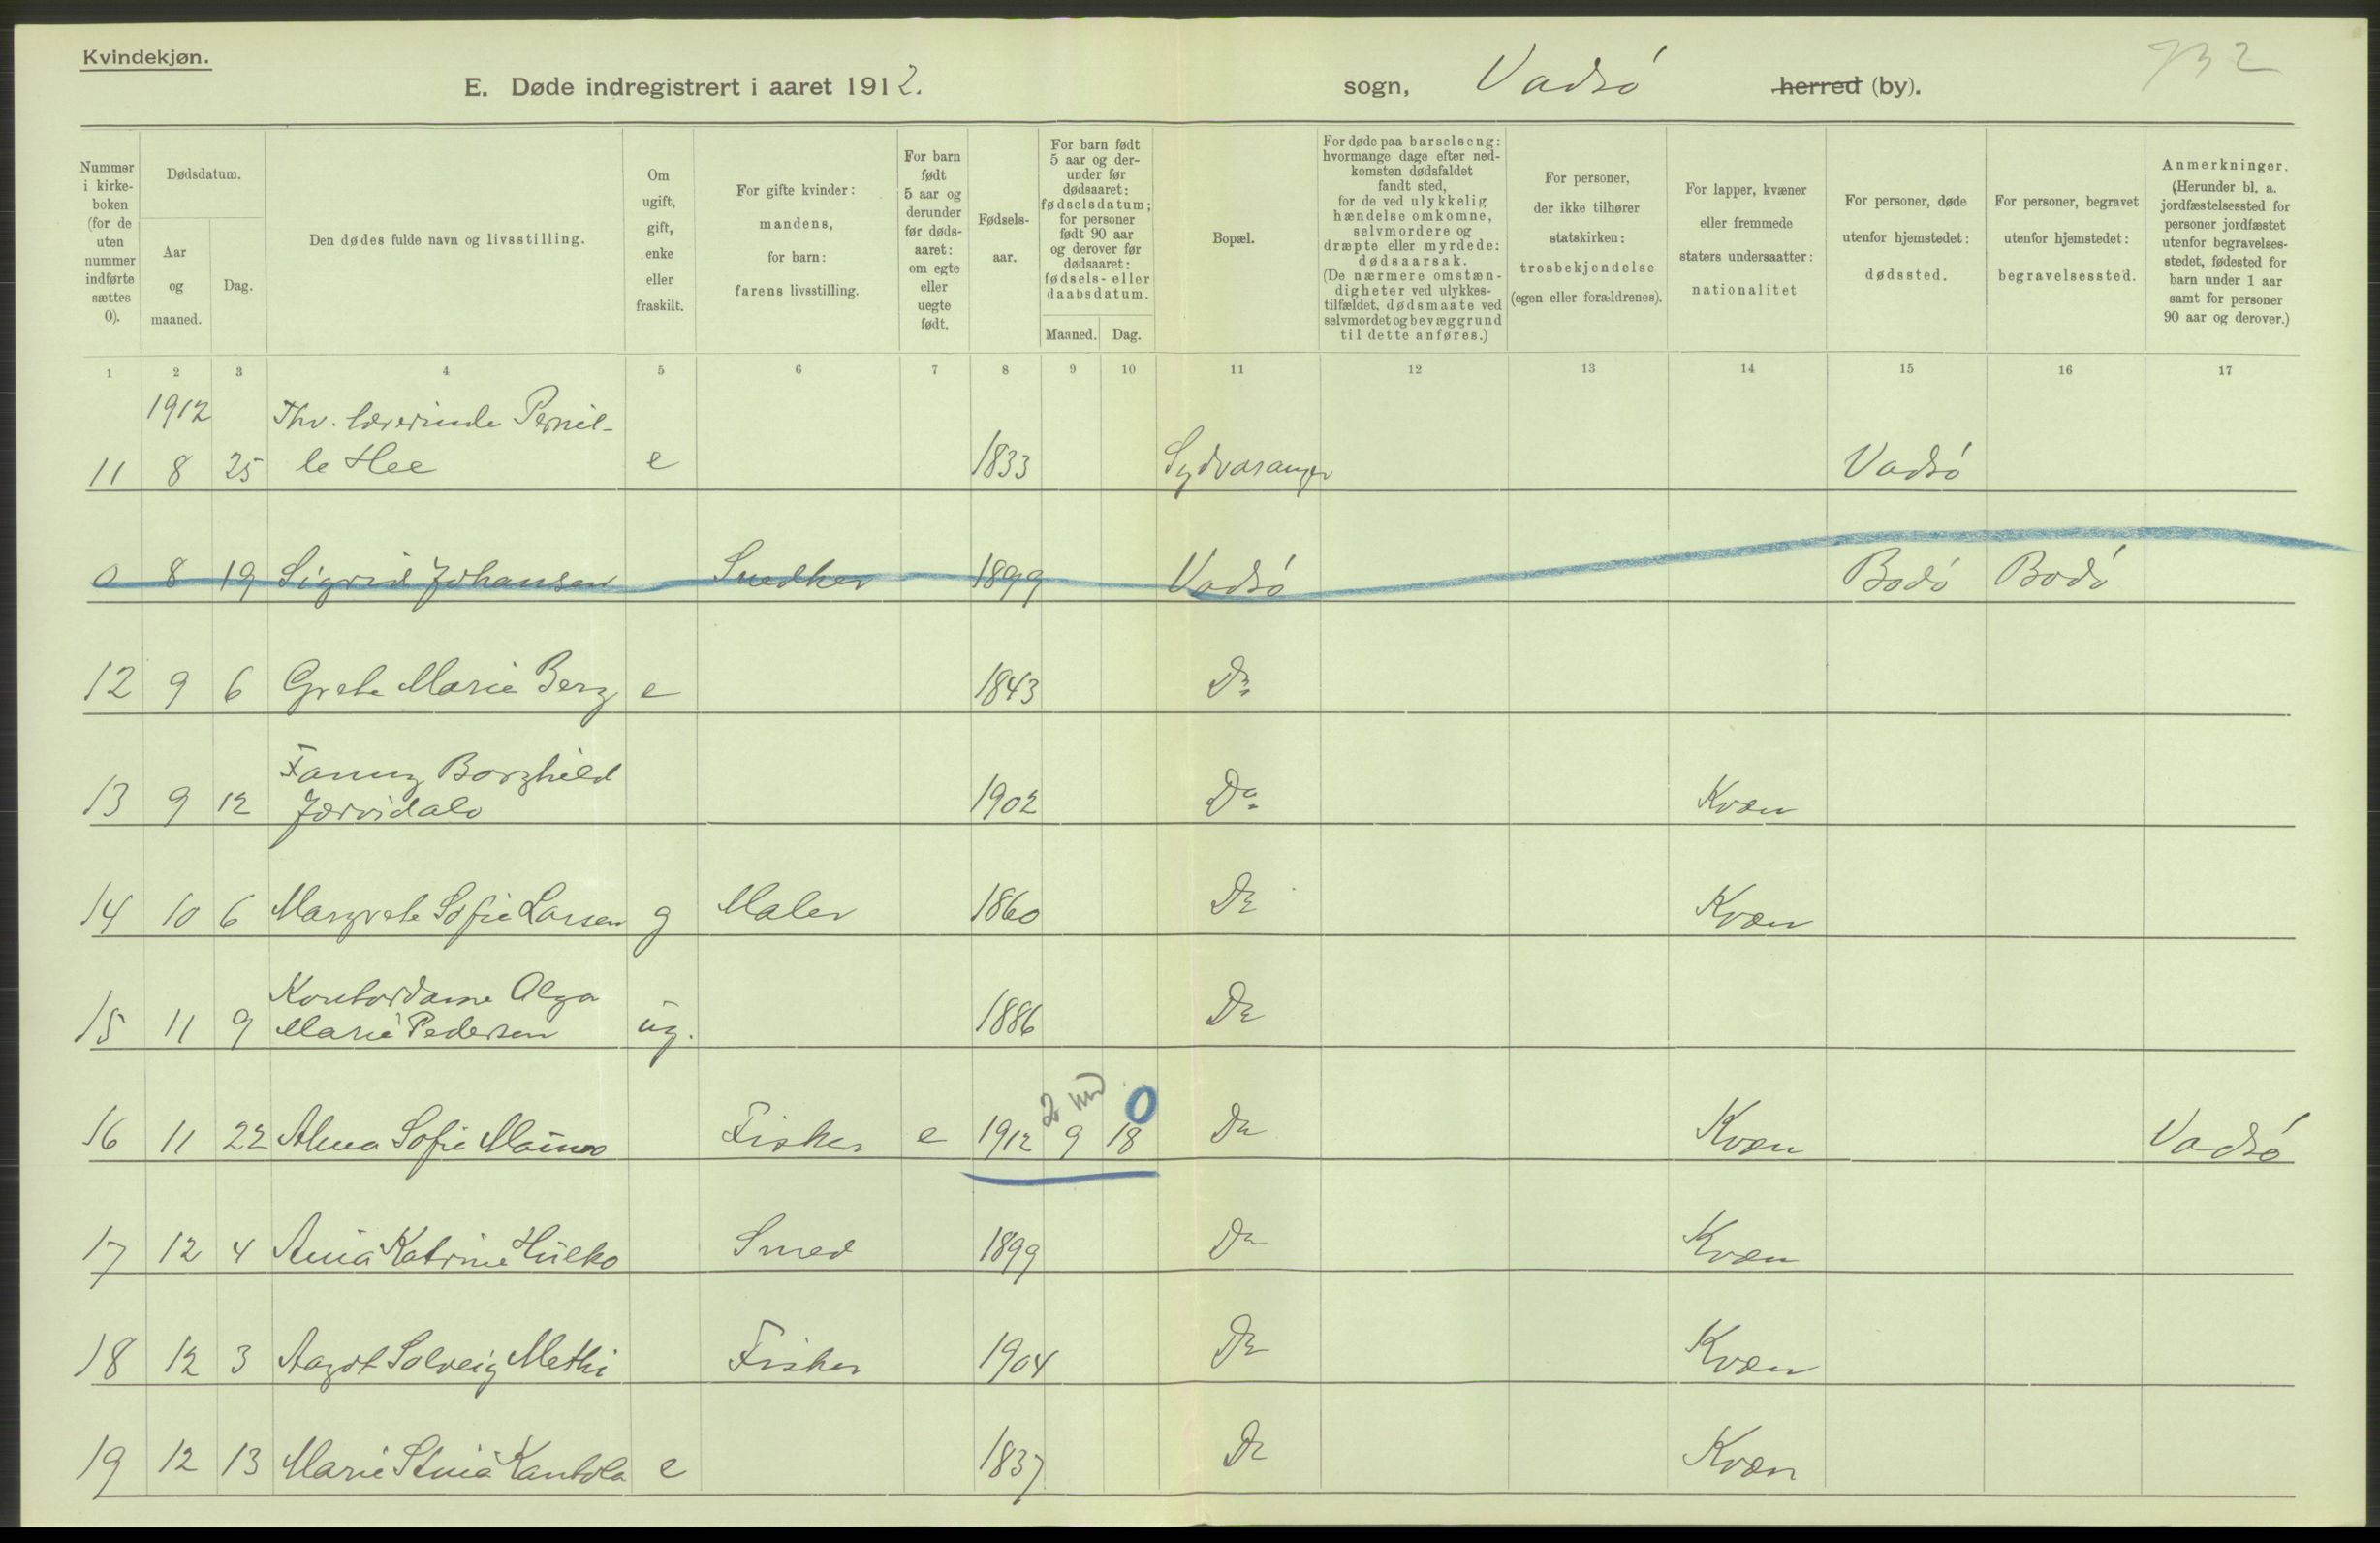 Kvindekjøn.
E. Døde indregistrert i aaret 1912. sogn, Vadsö herred (by). 732
Nummer i kirkeboken (for de uten nummer indførte sættes 0).
Dødsdatum.
Aar og maaned.
Dag.
Den dødes fulde navn og livsstilling.
Om ugift, gift, enke eller fraskilt.
For gifte kvinder: mandens, for barn: farens livsstilling.
For barn født 5 aar og derunder før dødsaaret: om egte eller uegte født.
Fødselsaar.
For barn født 5 aar og derunder før dødsaaret: fødselsdatum; for personer født 90 aar og derover før dødsaaret: fødsels- eller daabsdatum.
Maaned. Dag.
Bopæl.
For døde paa barselseng: hvormange dage efter nedkomsten dødsfaldet fandt sted, for de ved ulykkelig hændelse omkomne, selvmordere og dræpte eller myrdede: dødsaarsak. (De nærmere omstændigheter ved ulykkestilfældet, dødsmaate ved selvmordet og bevæggrund til dette anføres.)
For personer, der ikke tilhører statskirken: trosbekjendelse (egen eller forældrenes).
For lapper, kvæner eller fremmede staters undersaatter: nationalitet
For personer, døde utenfor hjemstedet: dødssted.
For personer, begravet utenfor hjemstedet: begravelsessted.
Anmerkninger. (Herunder bl. a. jordfæstelsessted for personer jordfæstet utenfor begravelsesstedet, fødested for barn under 1 aar samt for personer 90 aar og derover.)
1 2 3 4 5 6 7 8 9 10 11 12 13 14 15 16 17
1912 Fhv. lærerinde Pernil-
11 8 25 le Hee e 1833 Sydvaranger Vadsö
0 8 19 Sigrid Johansen Snedker 1899 Vadsö Bodö Bodö
12 9 6 Grete Marie Berg e 1843 Do
Fanny Borghild
13 9 12 Jærvidalo 1902 Do Kvæn
14 10 6 Margrete Sofie Larsen g Maler 1860 Do Kvæn
Kontordame Olga
15 11 9 Marie Pedersen ug. 1886 Do
2 md 0
16 11 22 Alma Sofie Fisker e 1912 9 18 Do Kvæn Vadsö
17 12 4 Anna Katrine Smed 1899 Do Kvæn
18 12 3 Aagot Solveig Methi Fisker 1904 Do Kvæn
19 12 13 Marie Stina Kantola e 1837 Do Kvæn